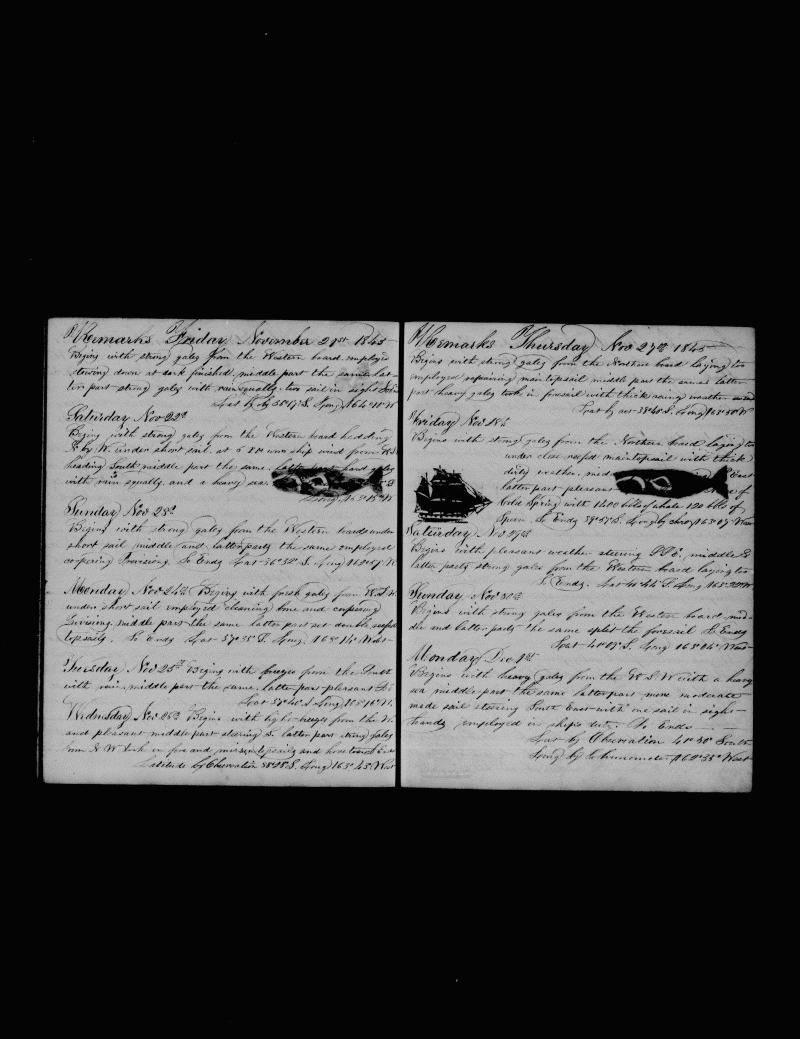 Remarks Friday November 21st 1845
Begins with strong gales from the Western board employed
stowing down at dark finished. middle part the same lat-
ter part strong gales with rain squalls. two sail in sight
Lat by ob 38°17' S. Long 164°11' W
Saturday Nov 22d
Begins with strong gales from the Western board heading
N. by W. under short sail. at 6 PM wore ship wind from
heading South middle part the same. Latter part hard gales
with rain squalls. and a heavy sea
Long 163°15' W
Sunday Nov 23d
Begins with strong gales from the Western board under
short sail middle and latter parts the same employed
coopering Provisions. So Ends Lat 36°32' S. Long 162°07' W.
Monday Nov 24th Begins with fresh gales from
under short sail employed cleaning bone and coopering
Provisions. middle part the same latter part set double reefed
topsails. So Ends Lat 37°35' S. Long. 163°14' West
Tuesday Nov 25th Begins with breezes from the South
with rain. middle part the same. latter part pleasant
Lat 37°40' S Long 163°10' W.
Wednesday Nov 26th Begins with light breezes from the
and pleasant middle part steering S. latter part strong gales
from N W took in fore and mizen topsails and hove to
Latitude by Observation 38°28' S. Long 163°45' West
Remarks Thursday Nov 27th 1845
Begins with strong gales from the Northern board laying too
employed repairing maintopsail middle part the same latter
part heavy gales took in foresail with thick rainy weather
Lat by acc 38°40' S. Long 163°38' W
Friday Nov 28th
Begins with strong gales from the Northern board laying to
under close reefed maintopsail with thick
dirty weather. mid East
latter part pleasant of
Cold Spring with 1200 bbls of whale 120 bbls of
Sperm. So Ends 39°57' S. Long by chro 163°07' West
Saturday Nov 29th
Begins with pleasant weather steering middle &
latter parts strong gales from the Western board laying too
So Ends. Lat 40°44' S. Long 163°22' W
Sunday Nov 30th
Begins with strong gales from the Western board mid-
dle and latter parts the same split the foresail So Ends
Lat 41°07' S. Long 163°04' West
Monday Dec 1st
Begins with heavy gales from the W S W with a heavy
sea middle part the same latter part more moderate
made sail steering South East with one sail in sight
hands employed in ships duty. So Ends
Lat by Observation 41°30' South
Long by Chronometer 162°35' West